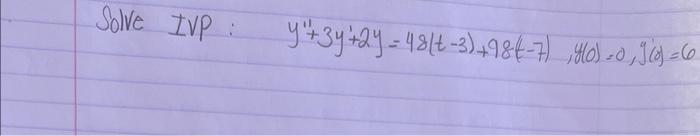 Solve IVP : y''+3y'+2y=4δ(t-3)+9δ(t-7) ,y(0)=0,y'(0)=6